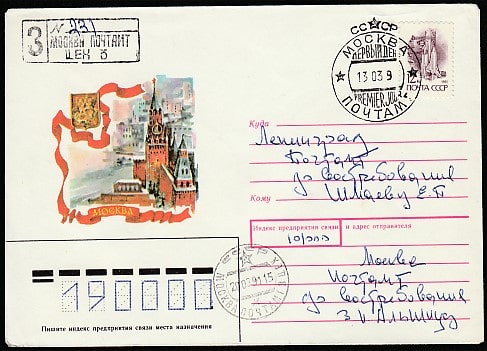 З
N 231
МОСКВА ПОЧТАМТ
ЦЕХ 3
СССР
МОСКВА
ПЕРВЫЙ ДЕНЬ
13 03 9
PREMIER JOUR
ПОЧТАМТ
12
ПОЧТА СССР
МОСКВА
Куда
Ленинград
Почтамт
до востребования
Кому
Шмаеву Е.П
Индекс предприятия связи
и адрес отправителя
101000
Москва
Почтамт
до востребования
190000
Пишите индекс предприятия связи места назначения